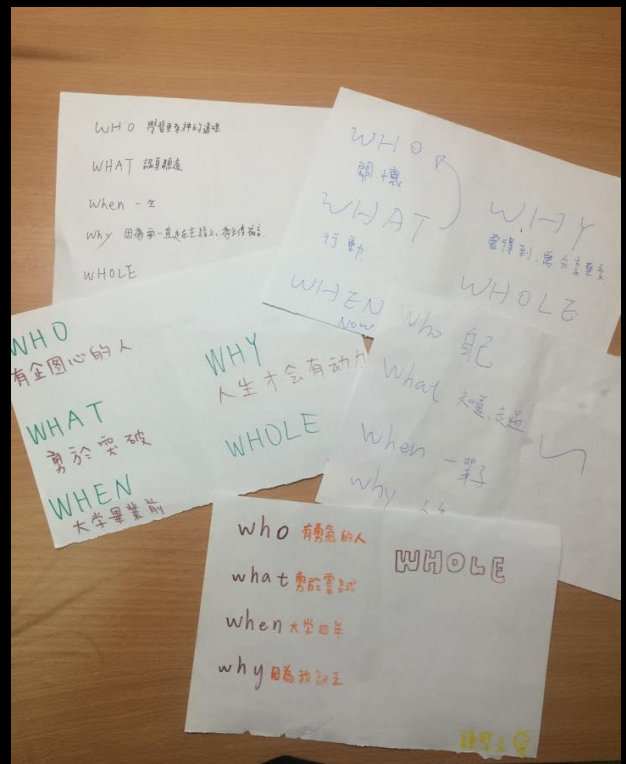 WHO 學習更多神的道理
WHAT 認真聽道
When 一生
Why 因為要一直走在主路上、為主傳福音.
WHOLE
WHO
關懷
WHAT
行動
WHEN
Now.
WHY
當得到,需分享
WHOLE
WHO
有企图心的人
WHAT
勇於突破
WHEN
大学畢業前
WHY
人生才会有动力
WHOLE
Who 自己
What
When 一輩子
Why
who 有勇氣的人
what 勇於嘗試
when 大學四年
why 因為我缺乏
WHOLE